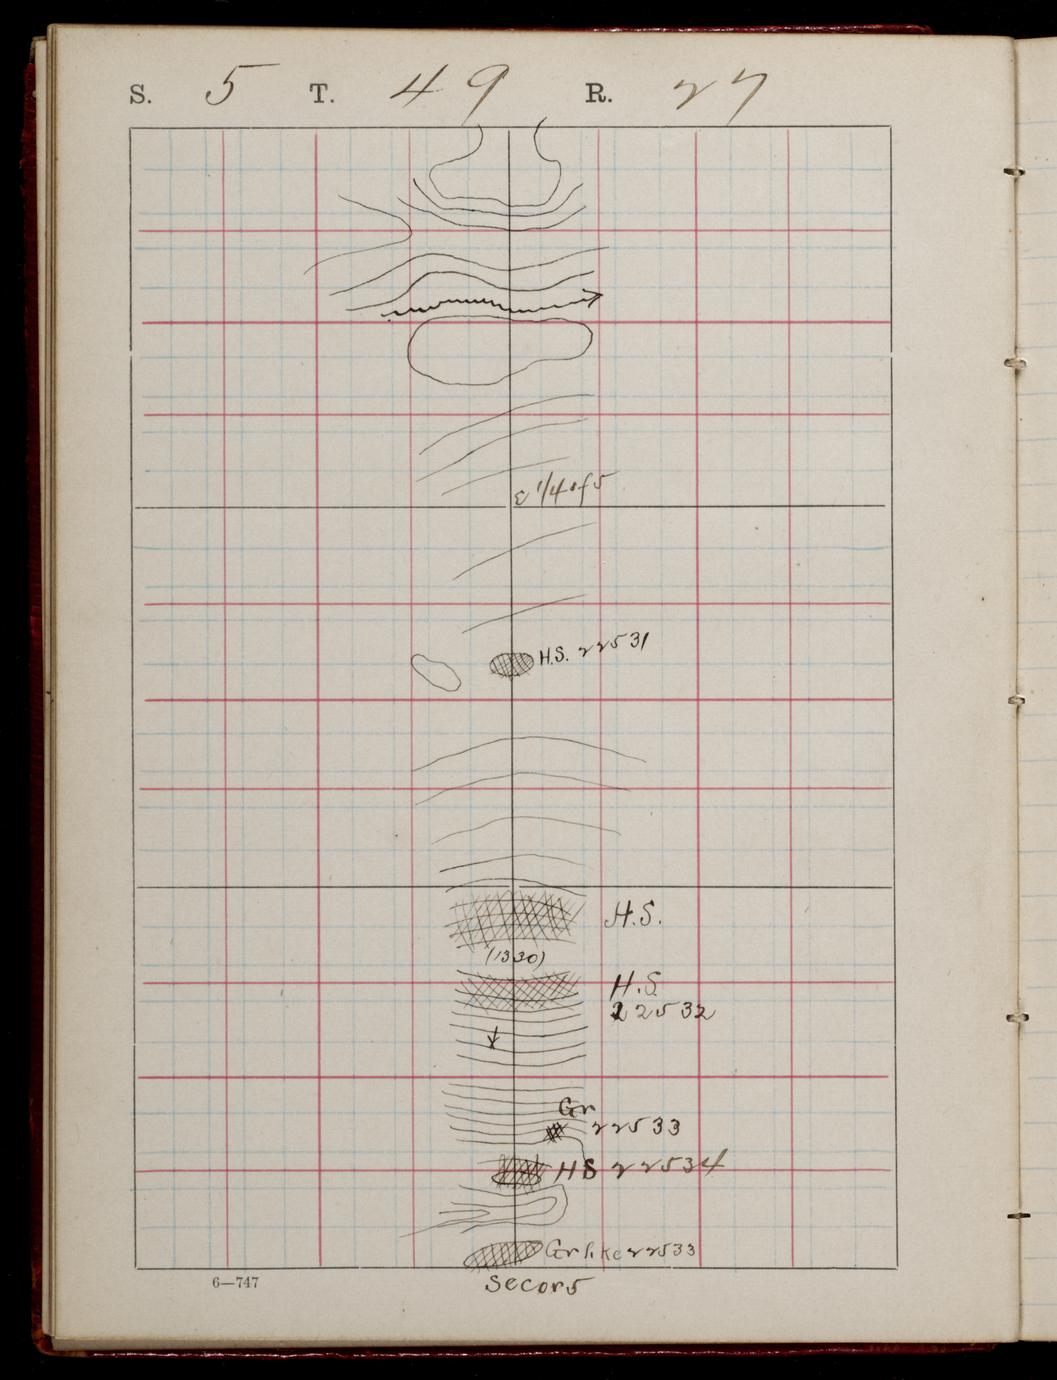 S. 5 T. 49 R. 27
E 1/4 of 5
H.S. 22531
H.S.
(1330)
H.S.
22532
Gr
22533
HS 22534
Gr like 22533
6—747
Secor 5